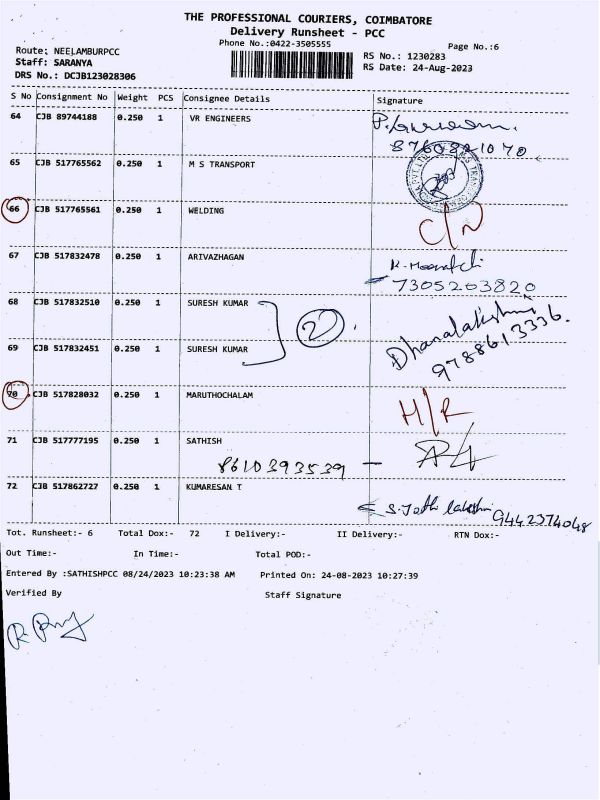 THE PROFESSIONAL COURIERS, COIMBATORE
Delivery Runsheet - PCC
Phone No.:0422-3505555
Page No.:6
Route: NEELAMBURPCC
Staff: SARANYA
DRS No.: DCJB123028306
RS No.: 1230283
RS Date: 24-Aug-2023
S No Consignment No Weight PCS Consignee Details Signature
64 CJB 89744188 0.250 1 VR ENGINEERS
8760821070
65 CJB 517765562 0.250 1 M S TRANSPORT
66 CJB 517765561 0.250 1 WELDING C/N
67 CJB 517832478 0.250 1 ARIVAZHAGAN
7305203820
68 CJB 517832510 0.250 1 SURESH KUMAR
2
Dhanalakshmi
9788613336.
69 CJB 517832451 0.250 1 SURESH KUMAR
70 CJB 517828032 0.250 1 MARUTHOCHALAM H/R
71 CJB 517777195 0.250 1 SATHISH
8610393539 -
72 CJB 517862727 0.250 1 KUMARESAN T
S. Jothi lakshmi 9442374048
Tot. Runsheet:- 6 Total Dox:- 72 I Delivery:- II Delivery:- RTN Dox:-
Out Time:- In Time:- Total POD:-
Entered By :SATHISHPCC 08/24/2023 10:23:38 AM Printed On: 24-08-2023 10:27:39
Verified By Staff Signature